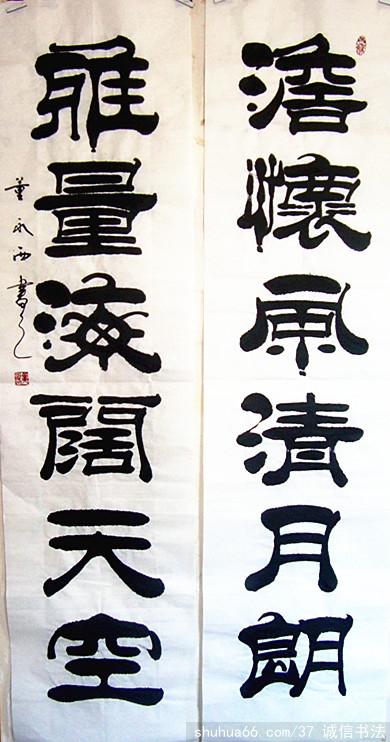 澹懷風清月朗
雅量海闊天空
董永西書
shuhua66.com/37 诚信书法